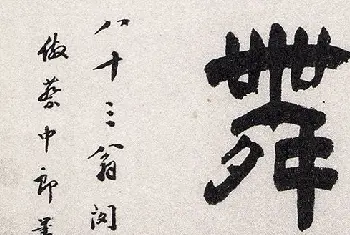 舞
八十三翁
倣蔡中郎